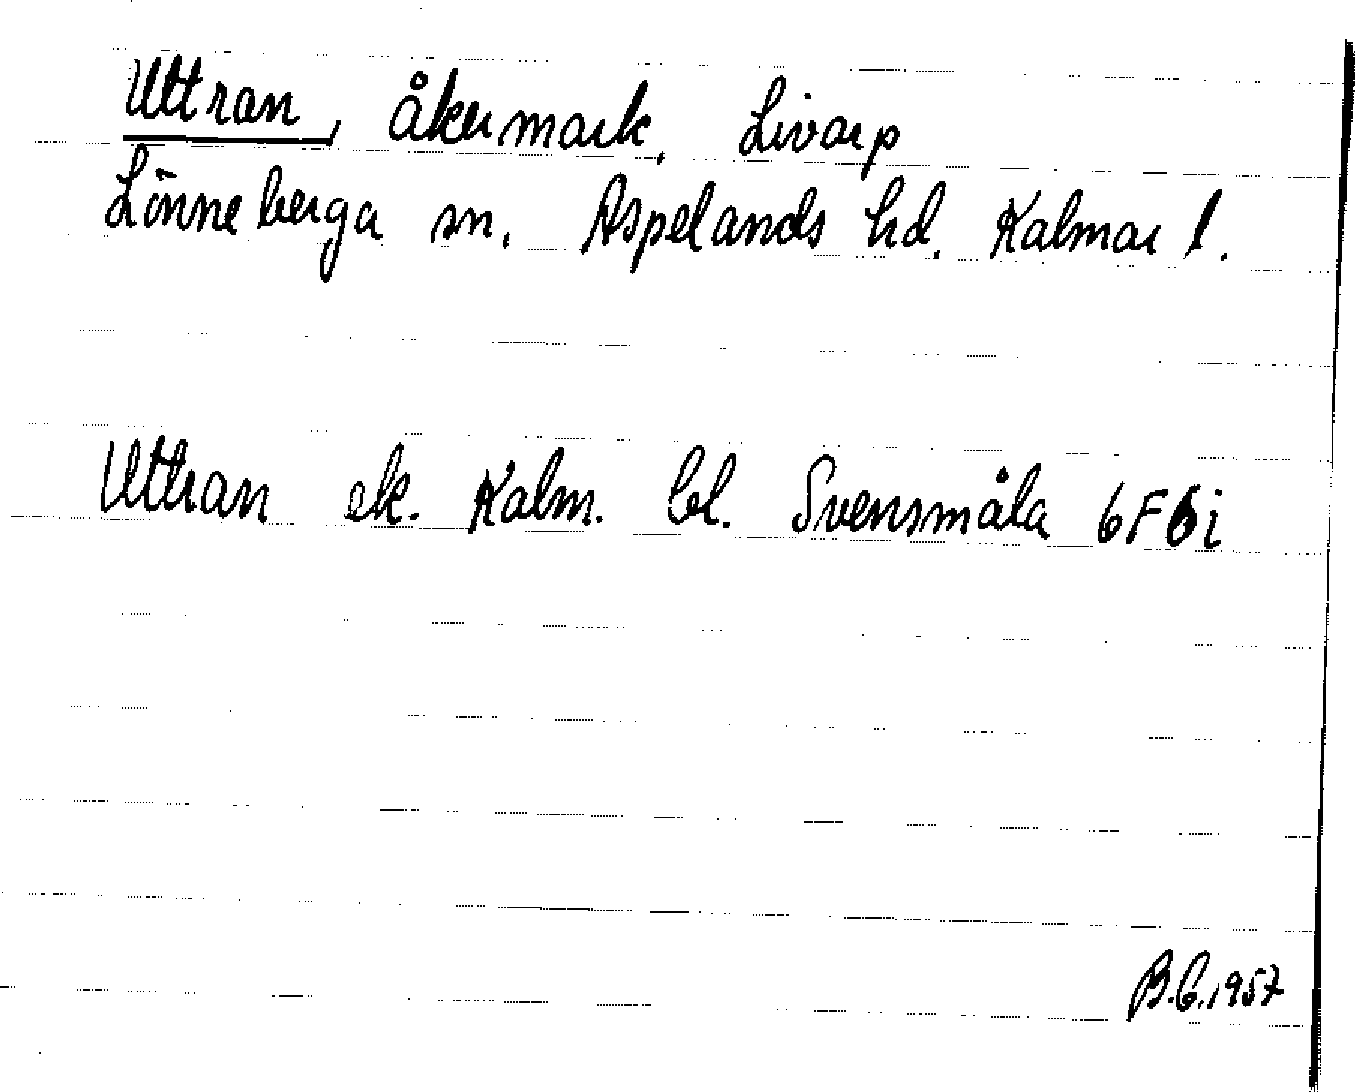 Uttran, åkermark, Livarp
Lönneberga sn. Aspelands hd. Kalmar l.
Uttran ek. Kalm. bl. Svensmåla 6F6i
B.C. 1957